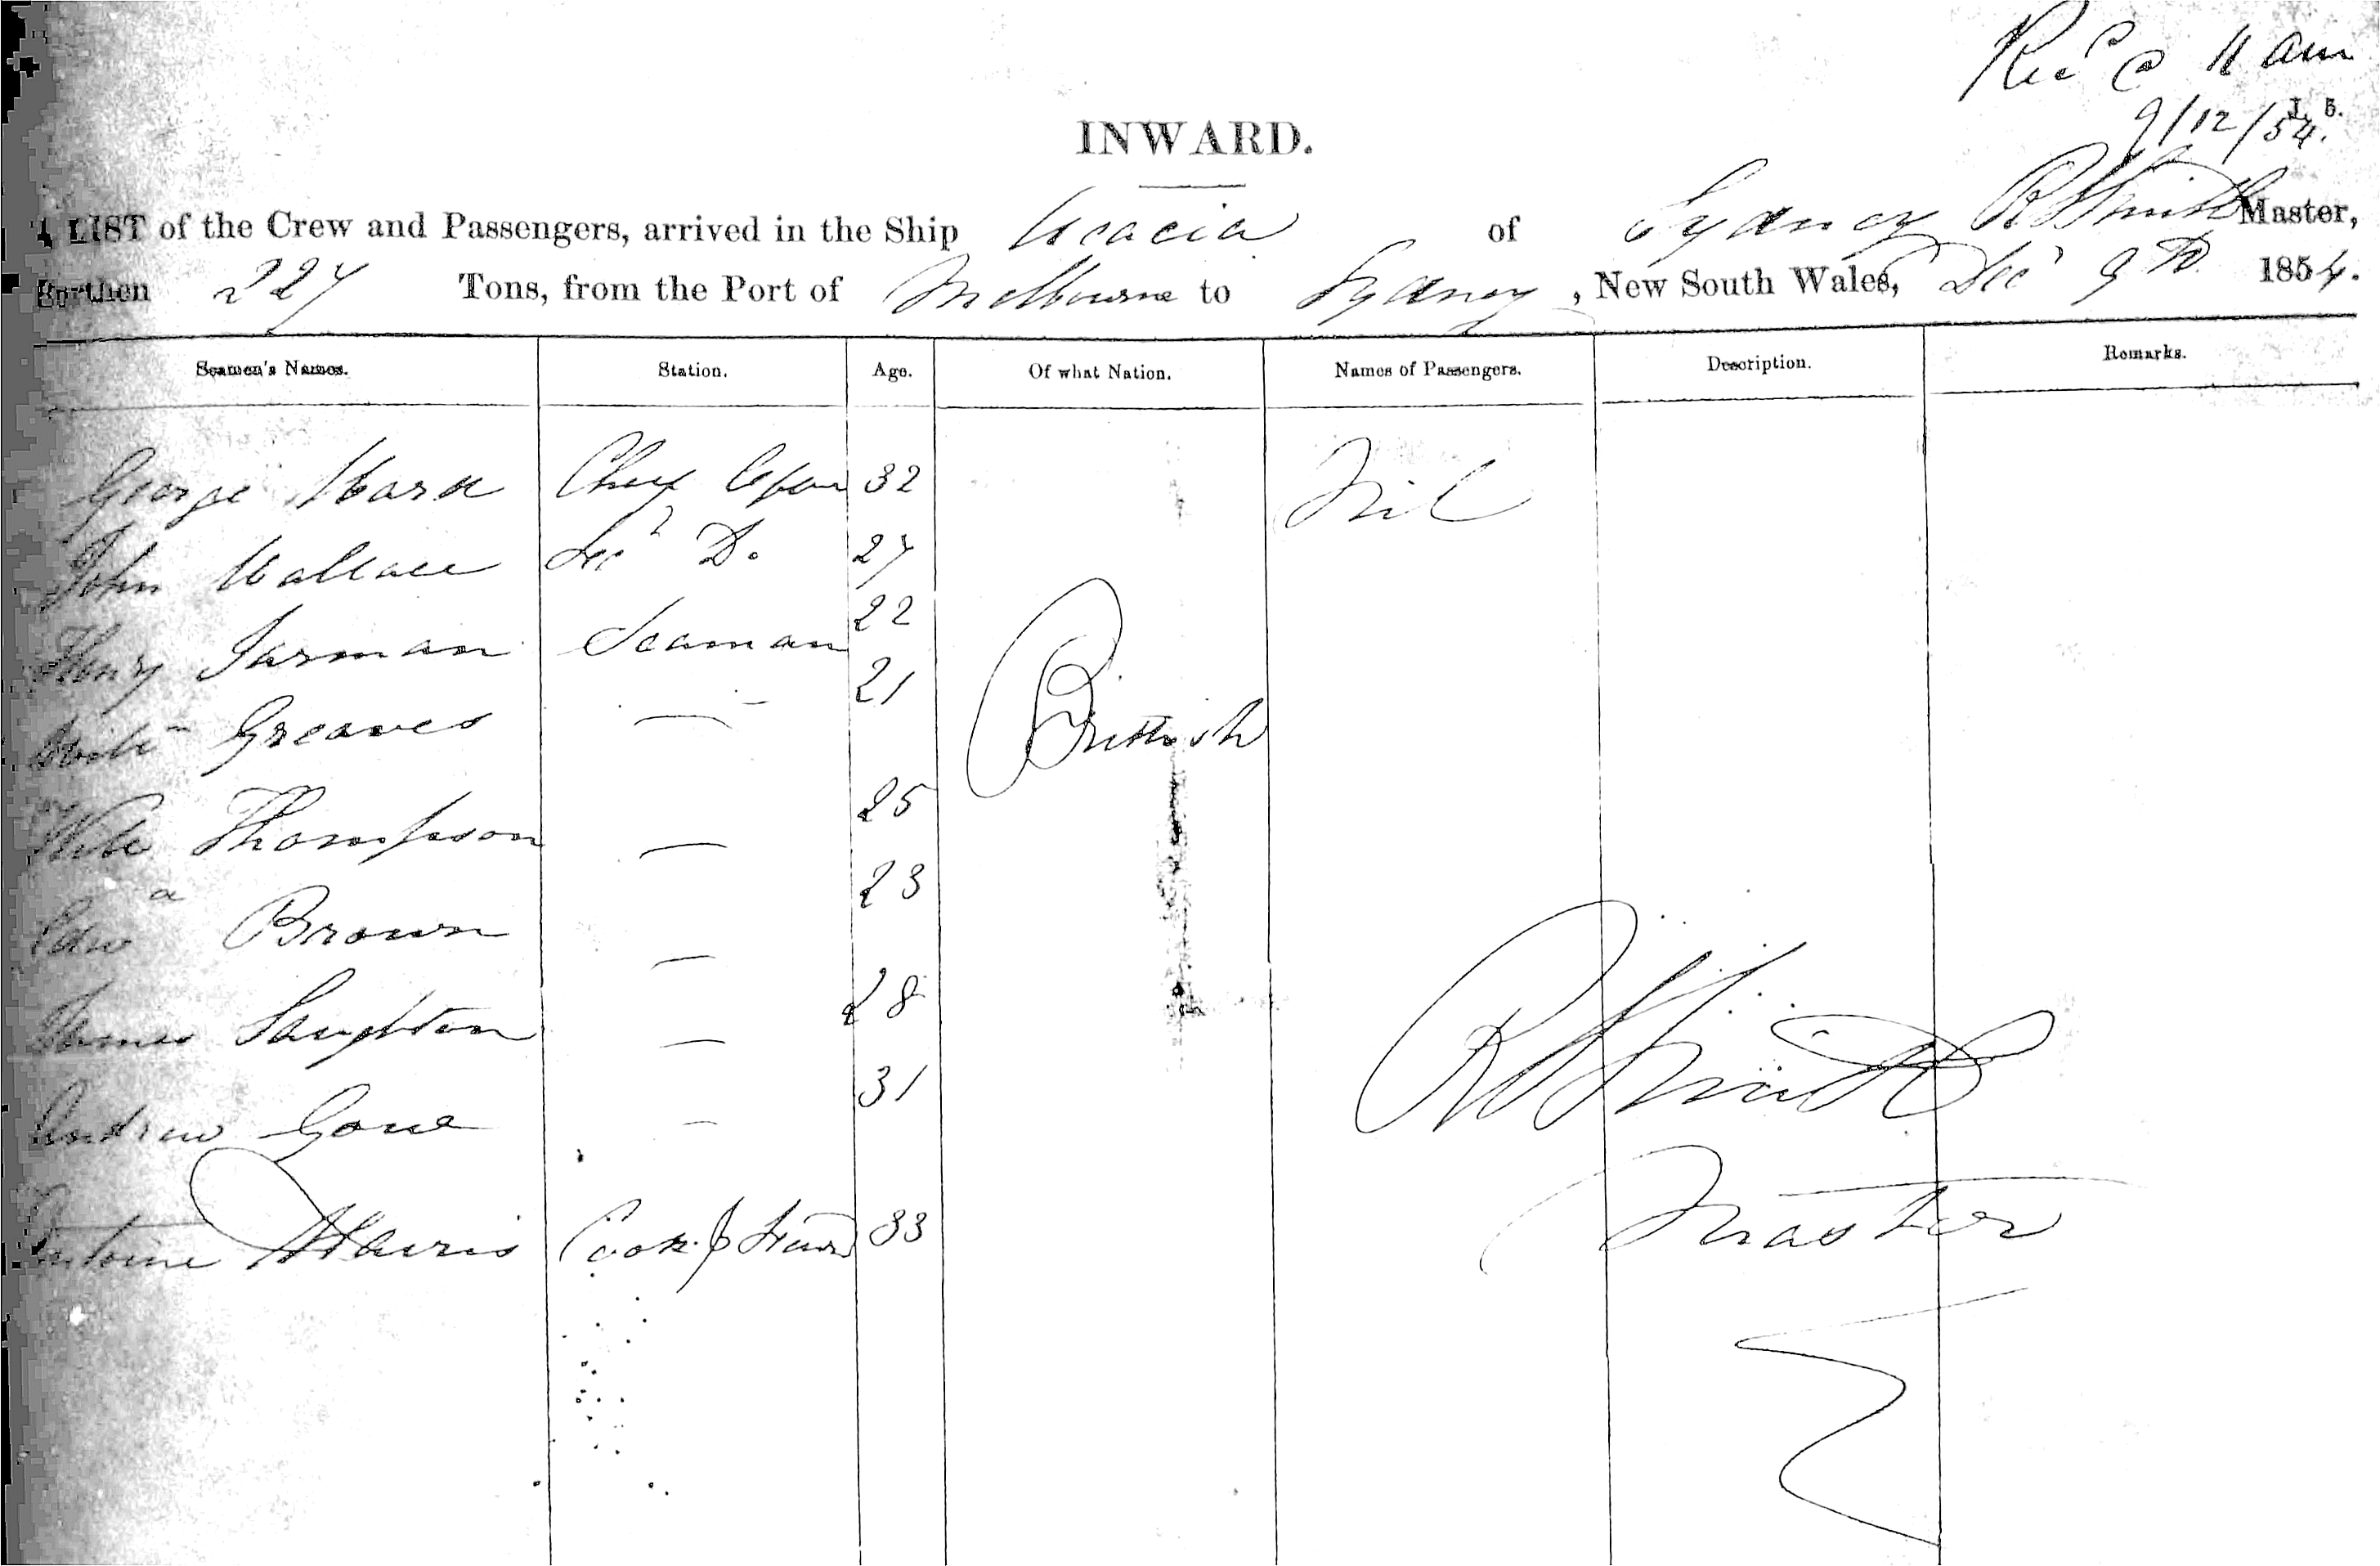 Rec.d @ 11 am
9/12/54.
INWARD.
A LIST of the Crew and Passengers, arrived in the Ship Acacia of Sydney R Smith Master,
Burthen 227 Tons, from the Port of Melbourne to Sydney, New South Wales, Dec 9th 1854.
Seamen's Names. Station. Age. Of what Nation. Names of Passengers. Description. Remarks.
George Chief 32 Nil
John Wallace Sec D. 27
Henry Jarman Seaman 22
Greaves — 21 Brittish
Thompson — 25
Edwd Brown — 23
James — 28
Andrew — 31
Antoine Harris Cook & 33
R Smith
Master